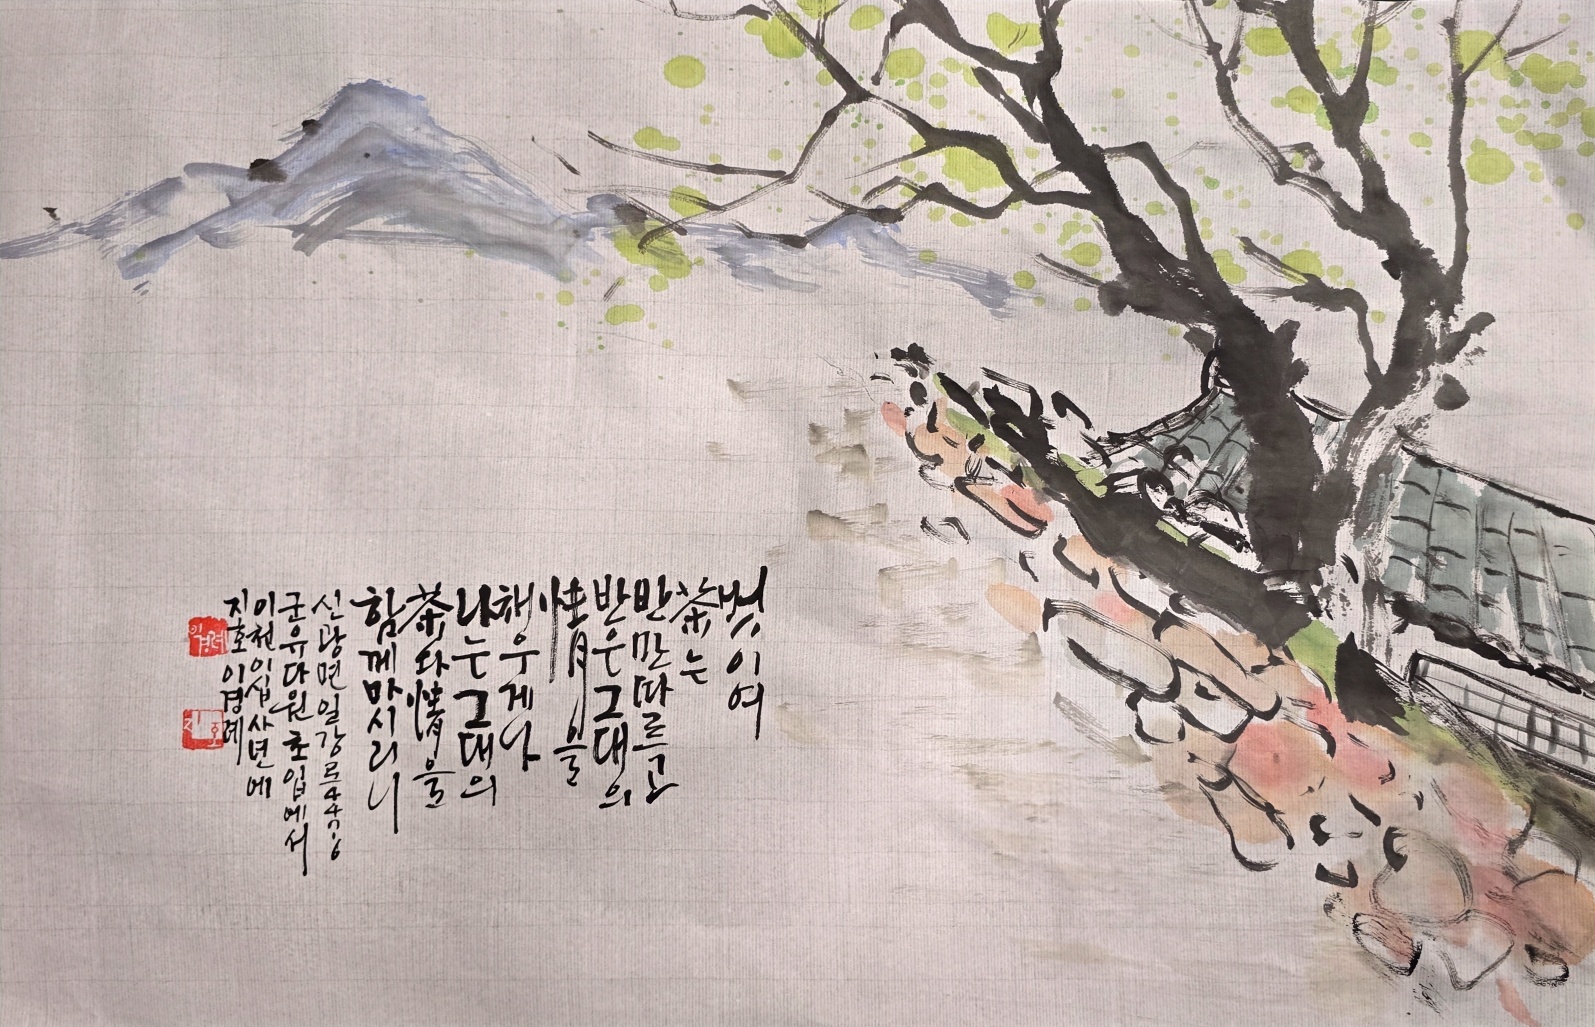 벗이여
茶는
반만 따르고
반은 그대의
情을
채우게나
나는 그대의
茶와 情을
함께 마시리니
신광면 일강로 440-6
군유다원 초입에서
이천이십사년에
지호 이경례
이경례
지호